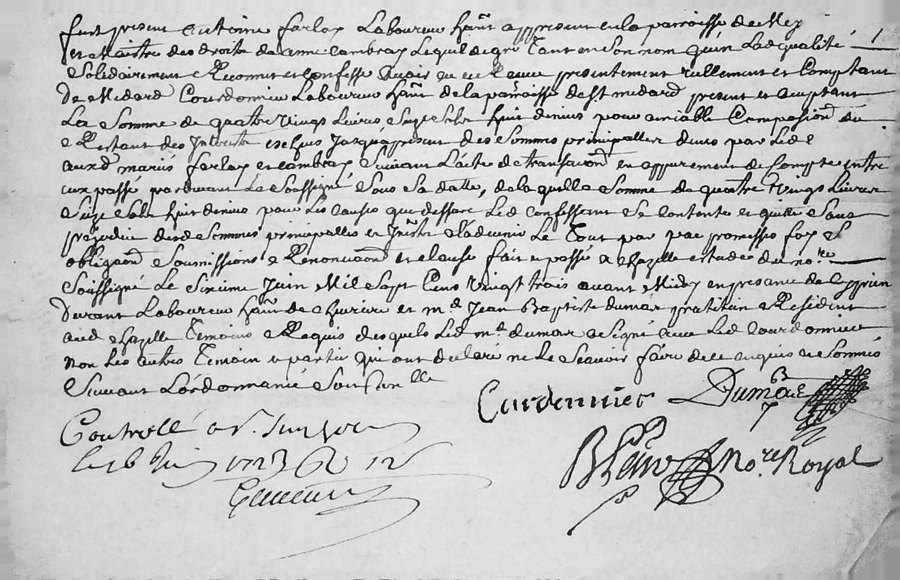 fut present Antoine farloz Laboureur ha͠nt a present en la parroisse de Mez
et Maistre des droits de anne Cambray Lequel de gré Tant en son nom qu'en Lad qualité
Solidairement a Reconnu et confessé Avoir eu et Receu presentement reellement et Comptant
De Medard Courdonnier Laboureur ha͠nt de la parroisse de St medard present et acceptant
La Somme de quatre Vingt Livres Seize Sols huit deniers pour amiable Composi͠on du
Restant des Interests escheus Jusqu'a present des Sommes principalles deües par Led
auxd mariés farloz et Cambray Suivant L'acte de transacti͠on en appurement de Compte entre
eux passé pardevant Le Soussigné Sous Sa datte, de laquelle Somme de quatre Vingt Livres
Seize Sols huit deniers pour Les causes que dessus Led Confessant Se Contente et quitte Sans
prejudice desd Sommes principalles et Int͠rts a ladvenir Le Tout par pac promesses foy et
obligaon͠ Soumissions a Renonciaon͠ et clause fait et passé a hazelle estude du no.re
Soussigné Le Sixieme Juin Mil Sept Cens Vingt trois avant Midy en presance de Cyprien
Durant Laboureur ha͠nt de et m.e Jean Baptiste dumas praticien Resident
aud hazelle Temoins a Requis desquels Led m.e dumas a Signé avec Led Courdonnier
non Les autres Temoin a partie qui ont declaré ne Le Scavoir faire de ce enquis et Sommés
Suivant L'ordonnance
Cardonnier Dumas
Controllé a
Le 6 Juin 1723
no.re Royal